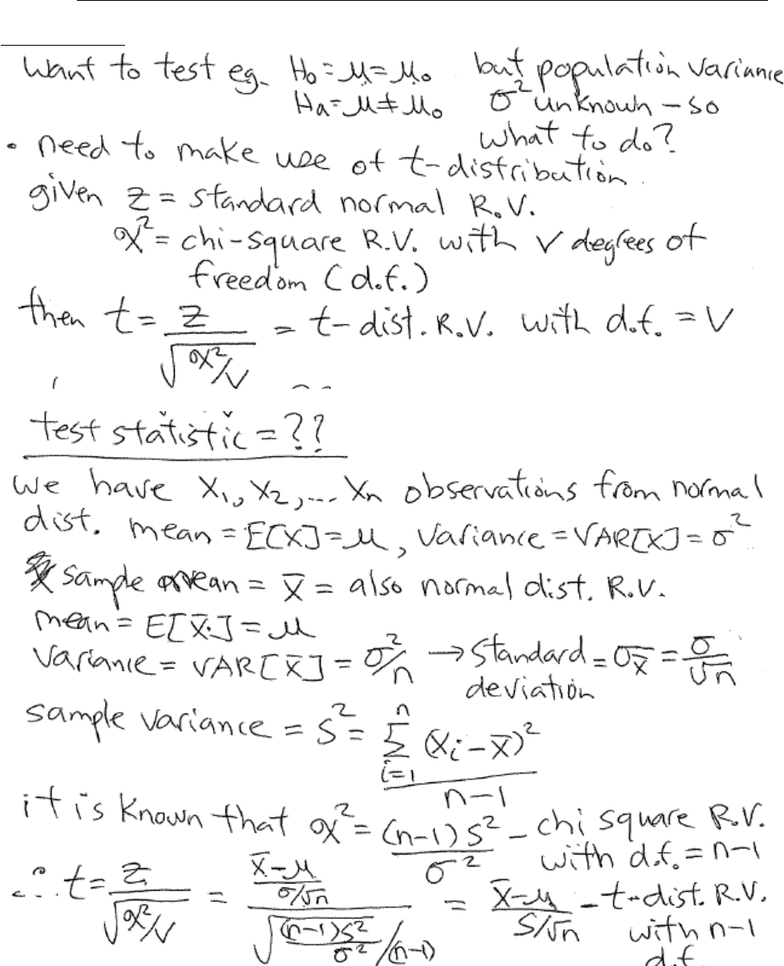 want to test eg. H₀ = μ = μ₀ but population variance
Ha = μ ≠ μ₀ σ² unknown - so
what to do?
• need to make use of t-distribution.
given z = standard normal R.V.
χ² = chi-square R.V. with v degrees of
freedom (d.f.)
then t = z / √(χ²/v) = t-dist. R.V. with d.f. = v
test statistic = ??
we have X₁, X₂, ... Xn observations from normal
dist. mean = E[X] = μ, variance = VAR[X] = σ²
sample mean = x̄ = also normal dist. R.V.
mean = E[x̄] = μ
variance = VAR[x̄] = σ²/n → standard = σx̄ = σ/√n
deviation
sample variance = s² = Σ i=1 n (xi - x̄)² / n-1
it is known that χ² = (n-1)s² / σ² - chi square R.V.
with d.f. = n-1
∴ t = z / √(χ²/v) = (x̄-μ / σ/√n) / √((n-1)s² / σ² /(n-1)) = x̄-μ / s/√n - t-dist. R.V.
with n-1
d.f.